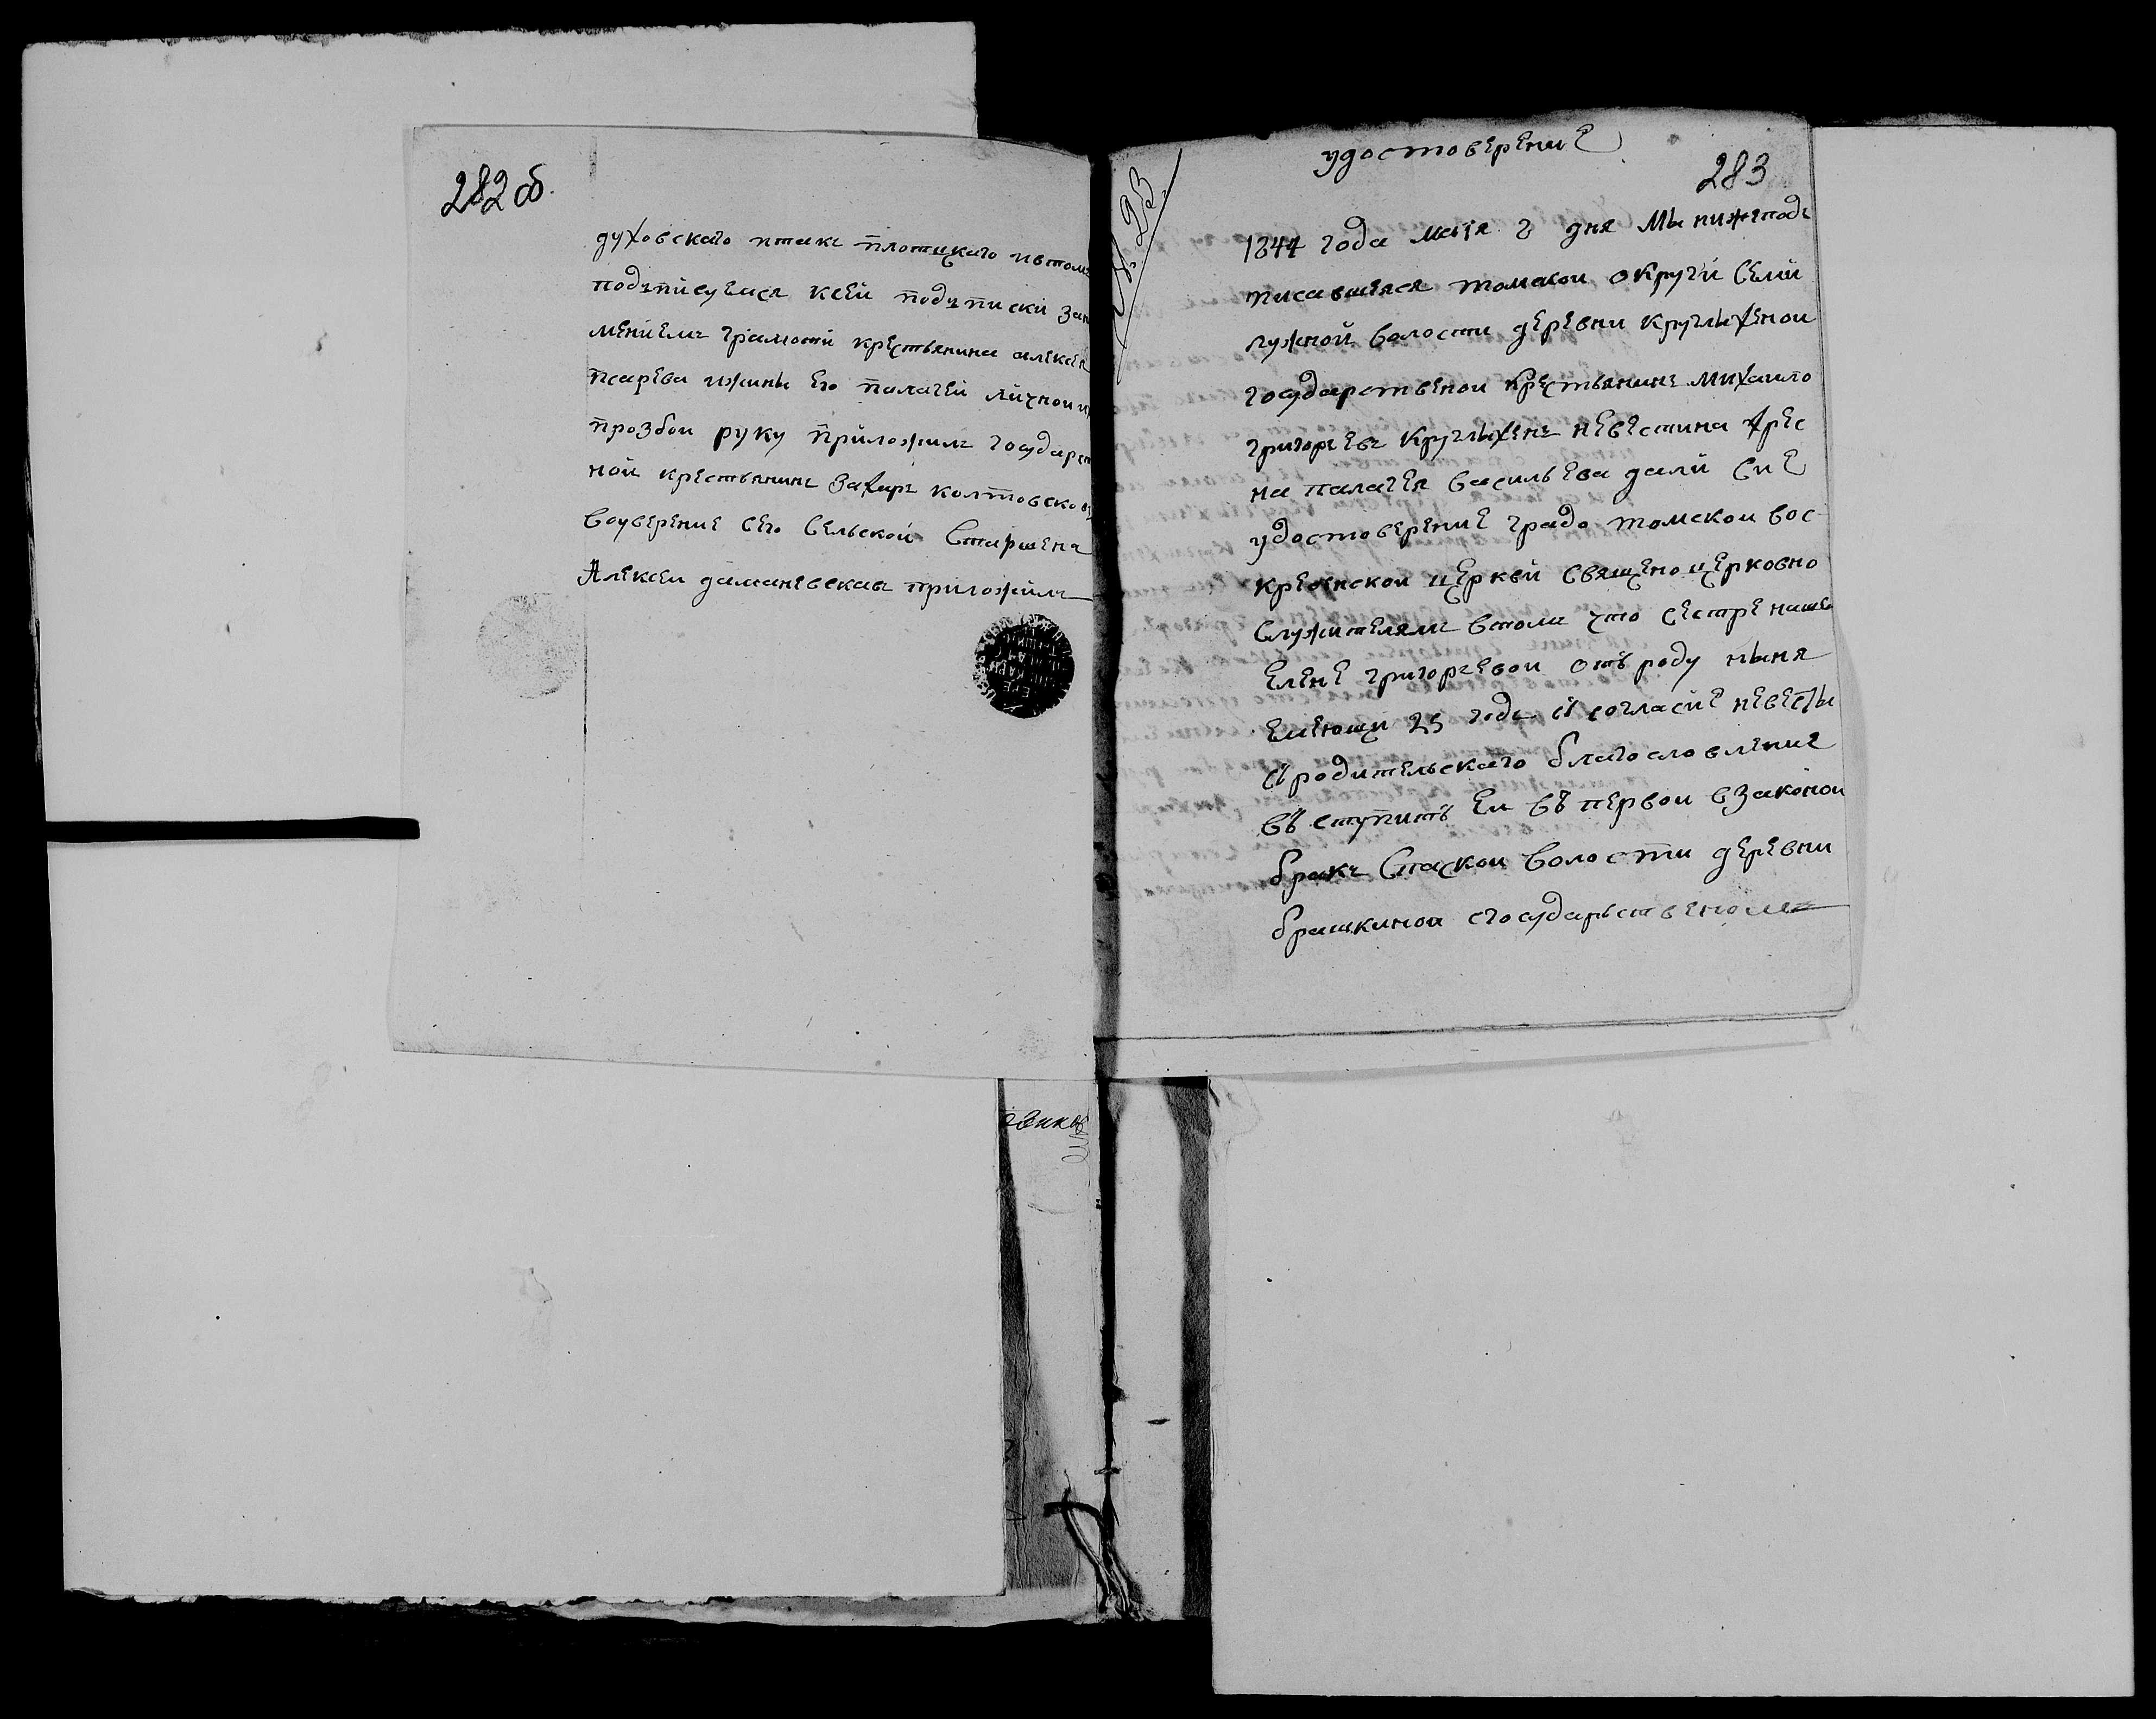 282 об.
духовскаго итакъ плотцкаго ивтомъ
подъписуемся ксей подъписки заН
мениемъ грамоти крестьянина алексея
писарева ижины Его палагеи личнои и
прозбои руку приложилъ государст
ной крестьянинъ Захаръ колтовской
Воуверение Сего Сельской Старшена
Алексеи даманевскав приложилъ
удостоверение
283
№ 23
1844 года маія 2 дня Мы нижеподъ
писавшеяся томской округи Семи
лужной волости деревни круглыхеной
государственои крестьянинъ михаило
григорьевъ Круглыхенъ невестина хрес
на палагея васильева дали Сие
удостоверение градо томской вос
кресенской церкви Священоцерковно
служителямъ втомъ что сестре наше
Елене григорьевои отъ роду ныня
Емеющи 25 годъ съ согласие невесты
съ родительскаго благословление
въ ступить Еи въ первои взаконои
бракъ Спаской волости деревни
брашкинои сгосударьственомъ